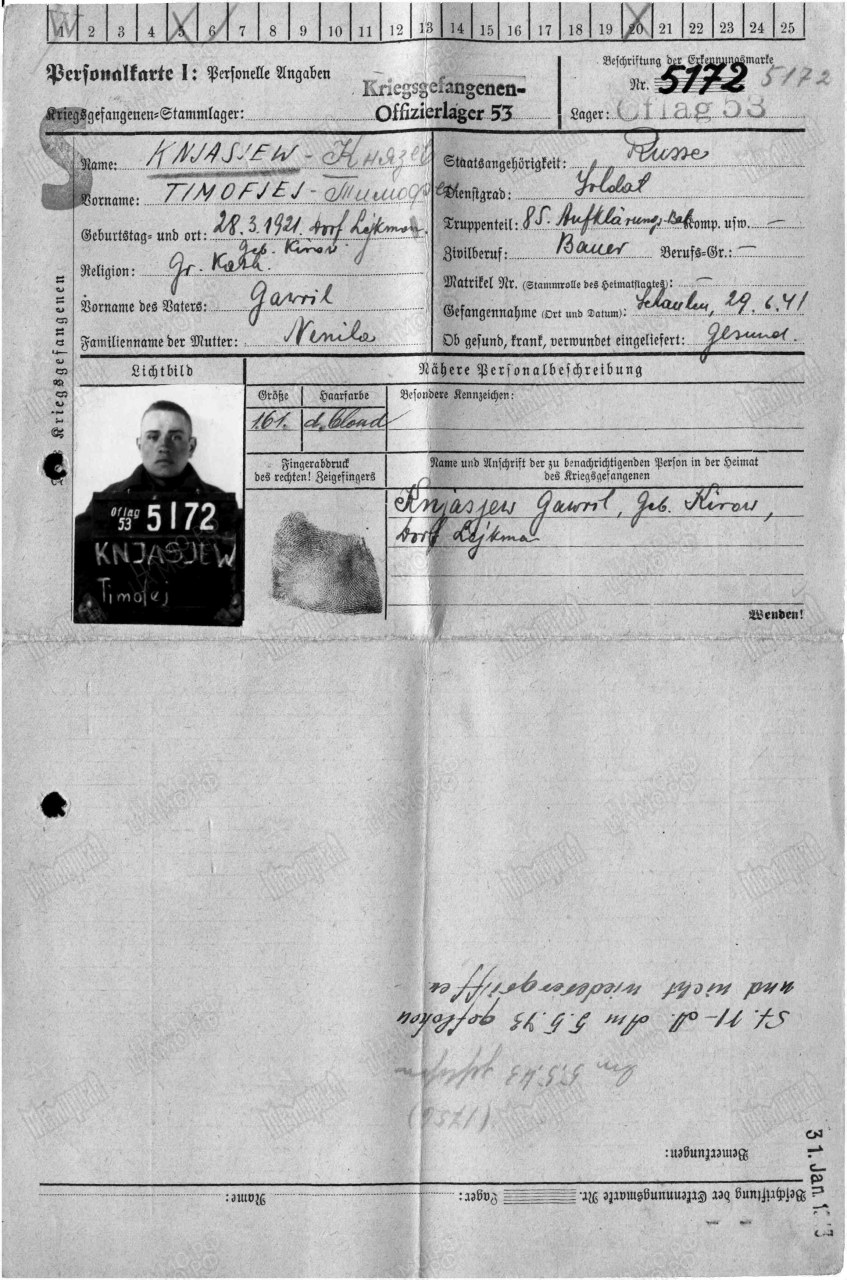 1 2 3 4 5 6 7 8 9 10 11 12 13 14 15 16 17 18 19 20 21 22 23 24 25
W
Personalkarte I: Personelle Angaben
Kriegsgefangenen-Stammlager:
Kriegsgefangenen-
Offizierlager 53
Beschriftung der Erkennungsmarke
Nr. 5172 5172
Lager: Oflag 53
S
Name: KNJASJEW - Князев
Vorname: TIMOFJEJ - Тимофей
Geburtstag- und ort: 28.3.1921. Dorf Lejkman.
Geb. Kirow.
Religion: Gr. Kath.
Vorname des Vaters: Gawril
Familienname der Mutter: Nenila
Staatsangehörigkeit: Russe
Dienstgrad: Soldat
Truppenteil: 85. Aufklärungs-Bat. Komp. usw. —
Zivilberuf: Bauer Berufs-Gr.: —
Matrikel Nr. (Stammrolle des Heimatstaates): —
Gefangennahme (Ort und Datum): Schaulen, 29.6.41
Ob gesund, krank, verwundet eingeliefert: gesund.
Kriegsgefangenen
Lichtbild
Oflag
53 5172
KNJASJEW
Timofej
Nähere Personalbeschreibung
Größe Haarfarbe Besondere Kennzeichen:
161. d. blond
Fingerabdruck
des rechten! Zeigefingers
Name und Anschrift der zu benachrichtigenden Person in der Heimat
des Kriegsgefangenen
Knjasjew Gawril, Geb. Kirow,
Dorf Lejkman
Wenden!
Beschriftung der Erkennungsmarke Nr. Lager: Name:
Bemerkungen:
(1756)
Am 5.5.43 geflohen
St. 11-A. Am 5.5.43 geflohen
und nicht wiederergriffen
31. Jan.